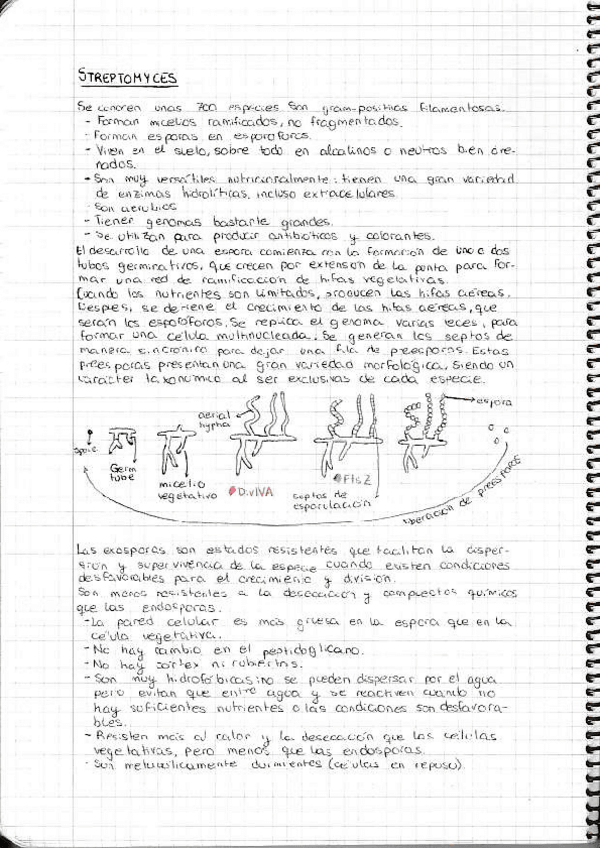 STREPTOMYCES
Se conocen unas 700 especies. Son gram-positivas filamentosas.
- Forman micelios ramificados, no fragmentados.
- Forman esporas en esporoforos.
- Viven en el suelo, sobre todo en alcalinos o neutros bien dre-
nados.
- Son muy versátiles nutricionalmente: tienen una gran variedad
de enzimas hidrolíticas, incluso extracelulares.
- Son aerobios
- Tienen genomas bastante grandes.
- Se utilizan para producir antibióticos y colorantes.
El desarrollo de una espora comienza con la formación de uno o dos
tubos germinativos, que crecen por extensión de la punta para for-
mar una red de ramificación de hifas vegetativas.
Cuando los nutrientes son limitados, producen las hifas aéreas.
Después, se detiene el crecimiento de las hifas aéreas, que
serán los esporóforos. Se replica el genoma varias veces, para
formar una célula multinucleada. Se generan los septos de
manera sincrónica para dejar una fila de preesporas. Estas
preesporas presentan una gran variedad morfológica, siendo un
carácter taxonómico al ser exclusivas de cada especie.
aerial
hypha
espora
Spore
Germ
tube
micelio
vegetativo
DivIVA
septos de
esporulación
FtsZ
liberación de preesporas
Las exosporas son estados resistentes que facilitan la disper-
sión y supervivencia de la especie cuando existen condiciones
desfavorables para el crecimiento y división.
Son menos resistentes a la desecación y compuestos químicos
que las endosporas.
- La pared celular es más gruesa en la espora que en la
célula vegetativa.
- No hay cambio en el peptidoglicano.
- No hay cortex ni cubiertas.
- Son muy hidrofóbicas: no se pueden dispersar por el agua
pero evitan que entre agua y se reactiven cuando no
hay suficientes nutrientes o las condiciones son desfavora-
bles.
- Resisten más al calor y la desecación que las células
vegetativas, pero menos que las endosporas.
- Son metabólicamente durmientes (células en reposo).